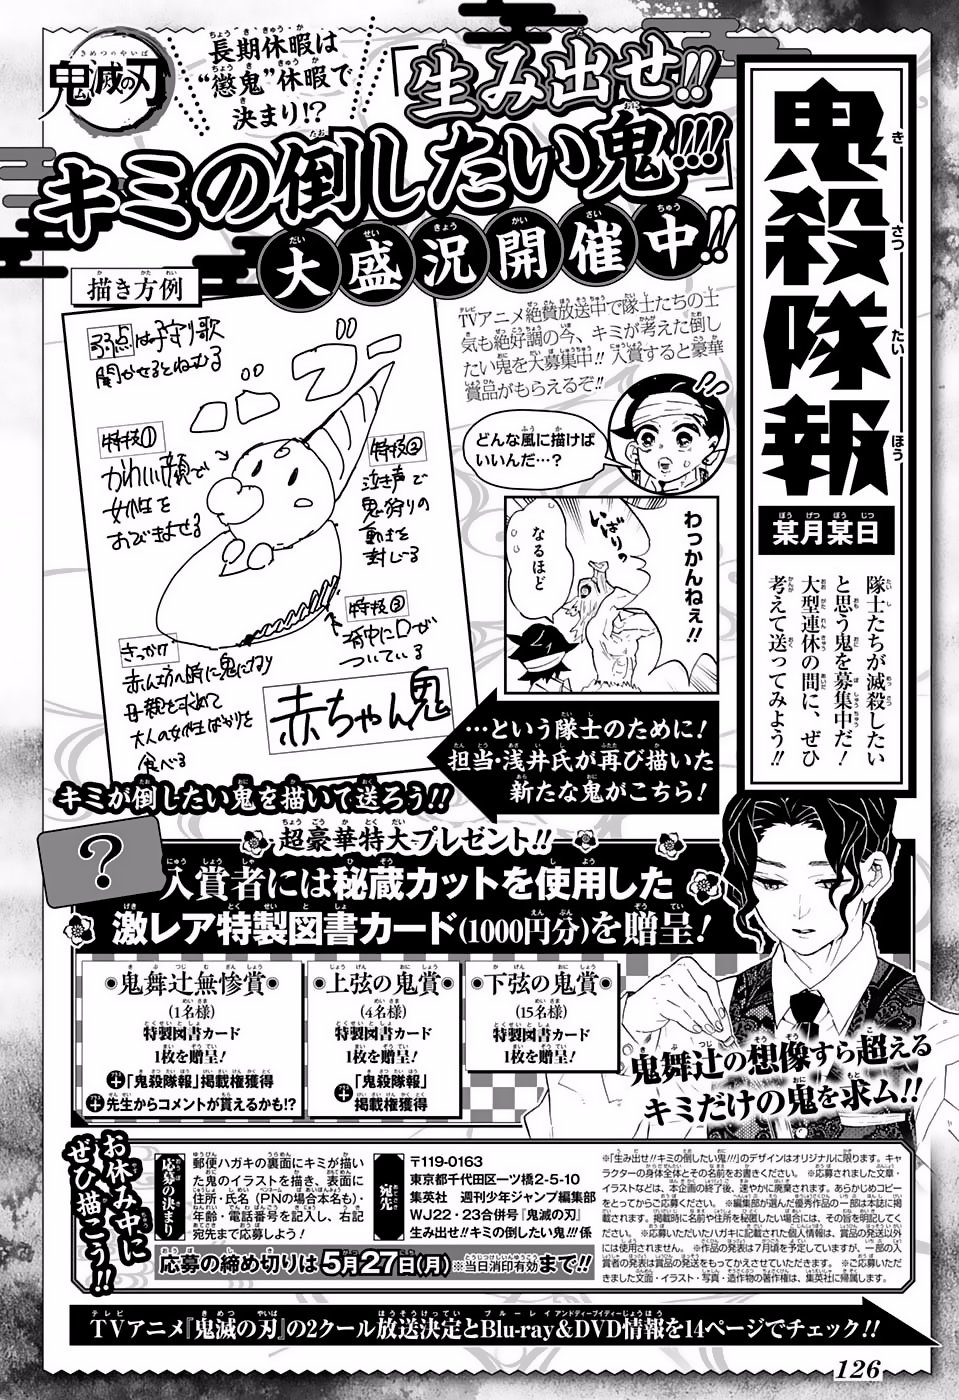 鬼滅の刃
長期休暇は
“懲鬼”休暇で
決まり!?
「生み出せ!!
キミの倒したい鬼!!!」
大盛況開催中!!
鬼殺隊報
某月某日
隊士たちが滅殺したい
と思う鬼を募集中だ!
大型連休の間に、ぜひ
考えて送ってみよう!!
描き方例
弱点は子守り歌
聞かせるとねむる
特技①
かわいい顔で
女性を
おびきよせる
特技②
泣き声で
鬼狩りの
動きを
封じる
特技③
背中に口が
ついている
きっかけ
赤ん坊の時に鬼になり
母親を求めて
大人の女性ばかりを
食べる
赤ちゃん鬼
TVアニメ絶賛放送中で隊士たちの士
気も絶好調の今、キミが考えた倒し
たい鬼を大募集中!! 入賞すると豪華
賞品がもらえるぞ!!
どんな風に描けば
いいんだ…?
わっかんねぇ!!
なるほど
…という隊士のために!
担当・浅井氏が再び描いた
新たな鬼がこちら!
キミが倒したい鬼を描いて送ろう!!
?
超豪華特大プレゼント!!
入賞者には秘蔵カットを使用した
激レア特製図書カード(1000円分)を贈呈!
鬼舞辻無惨賞
(1名様)
特製図書カード
1枚を贈呈!
+「鬼殺隊報」掲載権獲得
+先生からコメントが貰えるかも!?
上弦の鬼賞
(4名様)
特製図書カード
1枚を贈呈!
+「鬼殺隊報」
掲載権獲得
下弦の鬼賞
(15名様)
特製図書カード
1枚を贈呈!
鬼舞辻の想像すら超える
キミだけの鬼を求ム!!
お休み中に
ぜひ描こう!!
応募の決まり
郵便ハガキの裏面にキミが描い
た鬼のイラストを描き、表面に
住所・氏名(PNの場合本名も)・
年齢・電話番号を記入し、右記
宛先まで応募しよう!
宛先
〒119-0163
東京都千代田区一ツ橋2-5-10
集英社 週刊少年ジャンプ編集部
WJ22・23合併号『鬼滅の刃』
生み出せ!!キミの倒したい鬼!!!係
応募の締め切りは5月27日(月)※当日消印有効まで!!
※「生み出せ!!キミの倒したい鬼!!!」のデザインはオリジナルに限ります。キャ
ラクターの身体全体とその名前をお書きください。 ※応募されました文章・
イラストなどは、本企画の終了後、速やかに廃棄されます。あらかじめコピー
をとってからご応募ください。 ※編集部が選んだ優秀作品の一部は本誌に掲
載されます。掲載時に名前や住所を秘匿したい場合には、その旨を明記してく
ださい。 ※応募いただいたハガキに記載された個人情報は、賞品の発送以外
には使用されません。 ※作品の発表は7月頃を予定していますが、一部の入
賞者の発表は賞品の発送をもってかえさせていただきます。 ※ご応募いただ
きました文面・イラスト・写真・造作物の著作権は、集英社に帰属します。
TVアニメ『鬼滅の刃』の2クール放送決定とBlu-ray&DVD情報を14ページでチェック!!
126